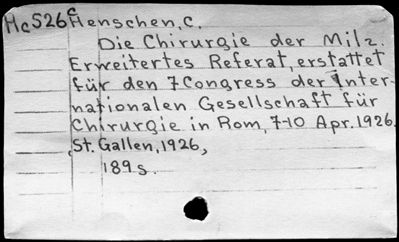 Hc526c Henschen, C.
Die Chirurgie der Milz.
Erweitertes Referat, erstattet
für den 7 Congress der Inter-
nationalen Gesellschaft für
Chirurgie in Rom, 7-10 Apr. 1926.
St. Gallen, 1926,
189s.